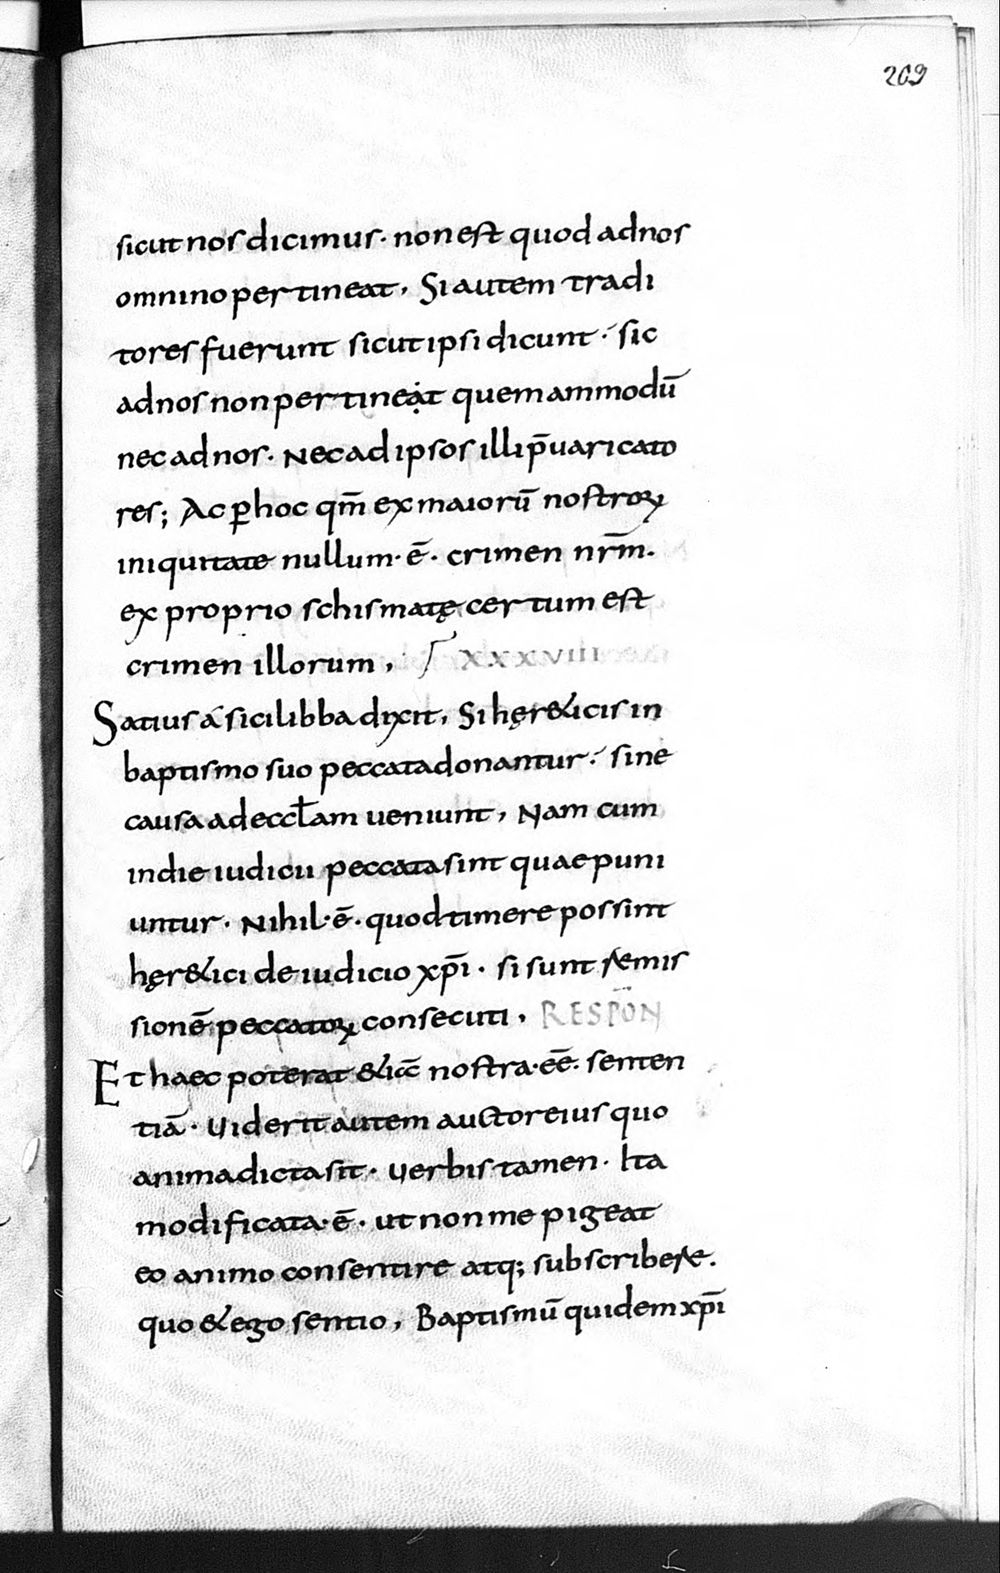 209
sicut nos dicimus · non est quod ad nos
omnino pertineat, Si autem tradi
tores fuerunt sicut ipsi dicunt · sic
ad nos non pertineat quemammodū
nec ad nos · Nec ad ipsos illi p̄uaricato
res; Ac ꝑ hoc qm̄ ex maiorū nostroꝝ
iniquitate nullum · ē · crimen nr̄m ·
ex proprio schismatę certum est
crimen illorum, XXXVIIII
Satius á sicilibba dixit, Si hęr&icis in
baptismo suo peccata donantur · sine
causa ad eccl̄am ueniunt, Nam cum
in die iudicii peccata sint quae puni
untur · Nihil · ē · quod timere possint
hęr&ici de iudicio xp̄i · si sunt remis
sionē peccatoꝝ consecuti, RESPON̄
Et haec poterat & icc̄ nostra · eē · senten
tiā · Uiderit autem auctor eius quo
anima dicta sit · uerbis tamen · Ita
modificata · ē · ut non me pigeat
eo animo consentire atq; subscribere ·
quo & ego sentio, Baptismū quidem xp̄i